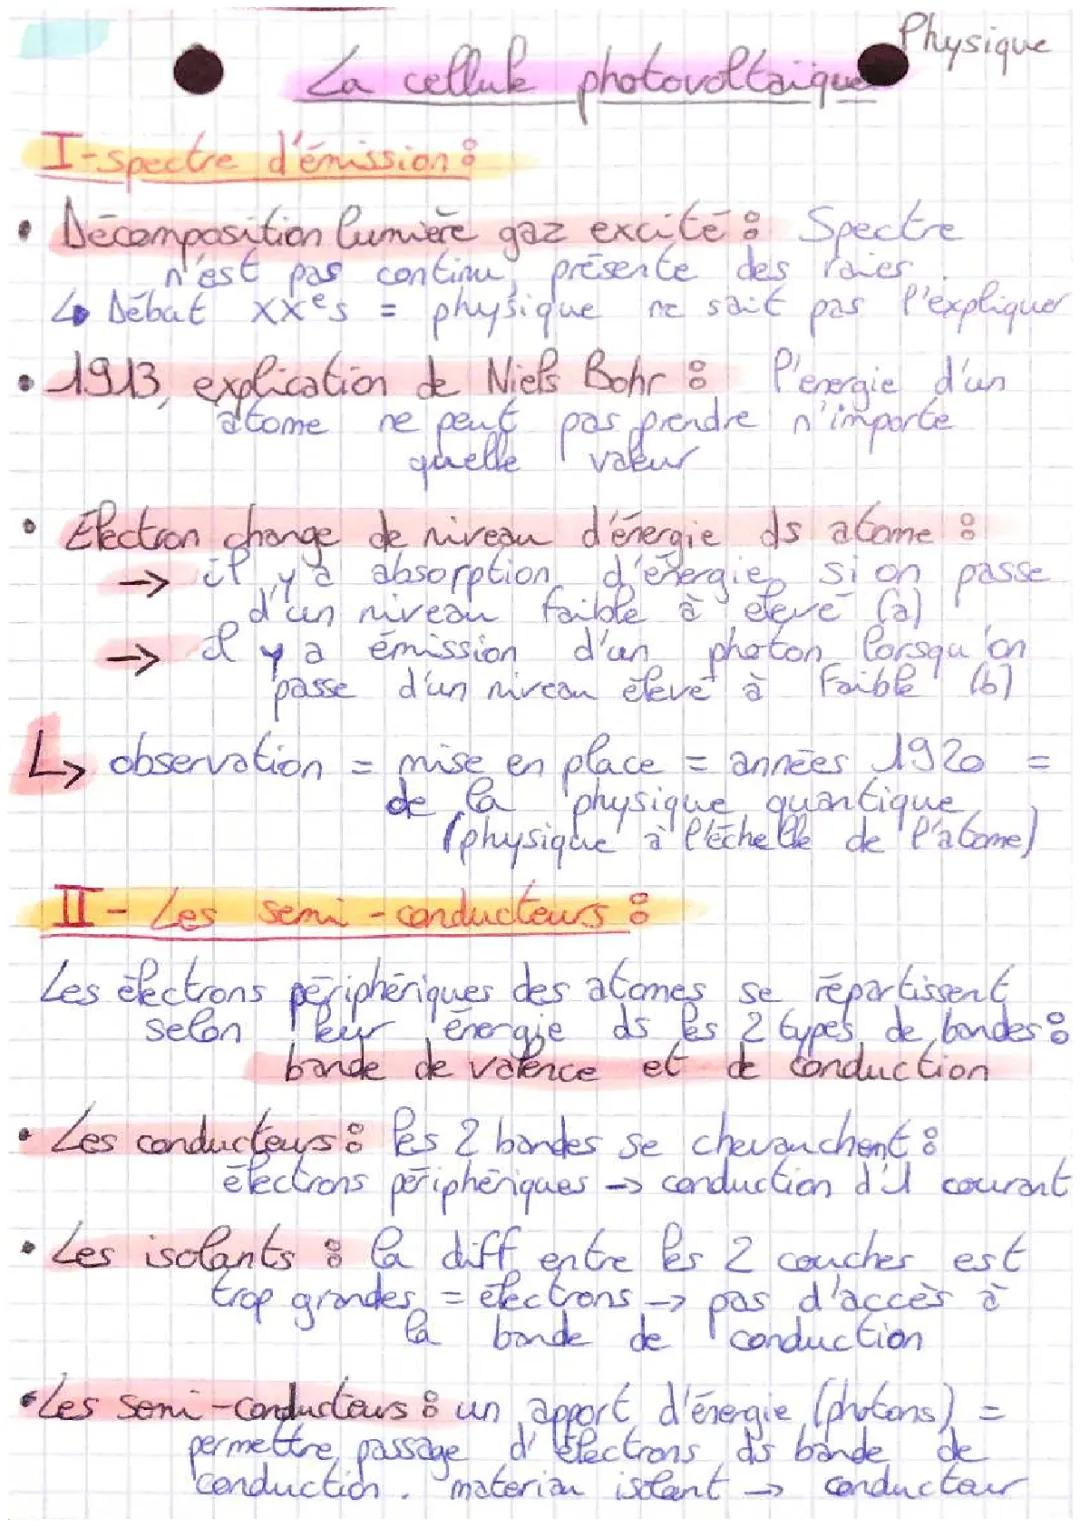 Physique
La cellule photovoltaïque
I - spectre d'émission :
• Décomposition lumière gaz excité : Spectre
n'est pas continu, présente des raies.
↳ Début XXe s = physique ne sait pas l'expliquer
• 1913, explication de Niels Bohr : l'énergie d'un
atome ne peut pas prendre n'importe
quelle valeur
• Electron change de niveau d'énergie ds atome :
→ il y a absorption d'énergie si on passe
d'un niveau faible à élevé (a)
→ il y a émission d'un photon lorsqu'on
passe d'un niveau élevé à faible (b)
↳ observation = mise en place = années 1920 =
de la physique quantique
(physique à l'échelle de l'atome)
II - Les semi-conducteurs :
Les électrons périphériques des atomes se répartissent
selon leur énergie ds les 2 types de bandes :
bande de valence et de conduction
• Les conducteurs : les 2 bandes se chevauchent :
électrons périphériques → conduction d'1 courant
• Les isolants : la diff entre les 2 couches est
trop grandes = électrons → pas d'accès à
la bande de conduction
• Les semi-conducteurs : un apport d'énergie (photons) =
permettre passage d'électrons ds bande de
conduction. materiau isolant → conducteur